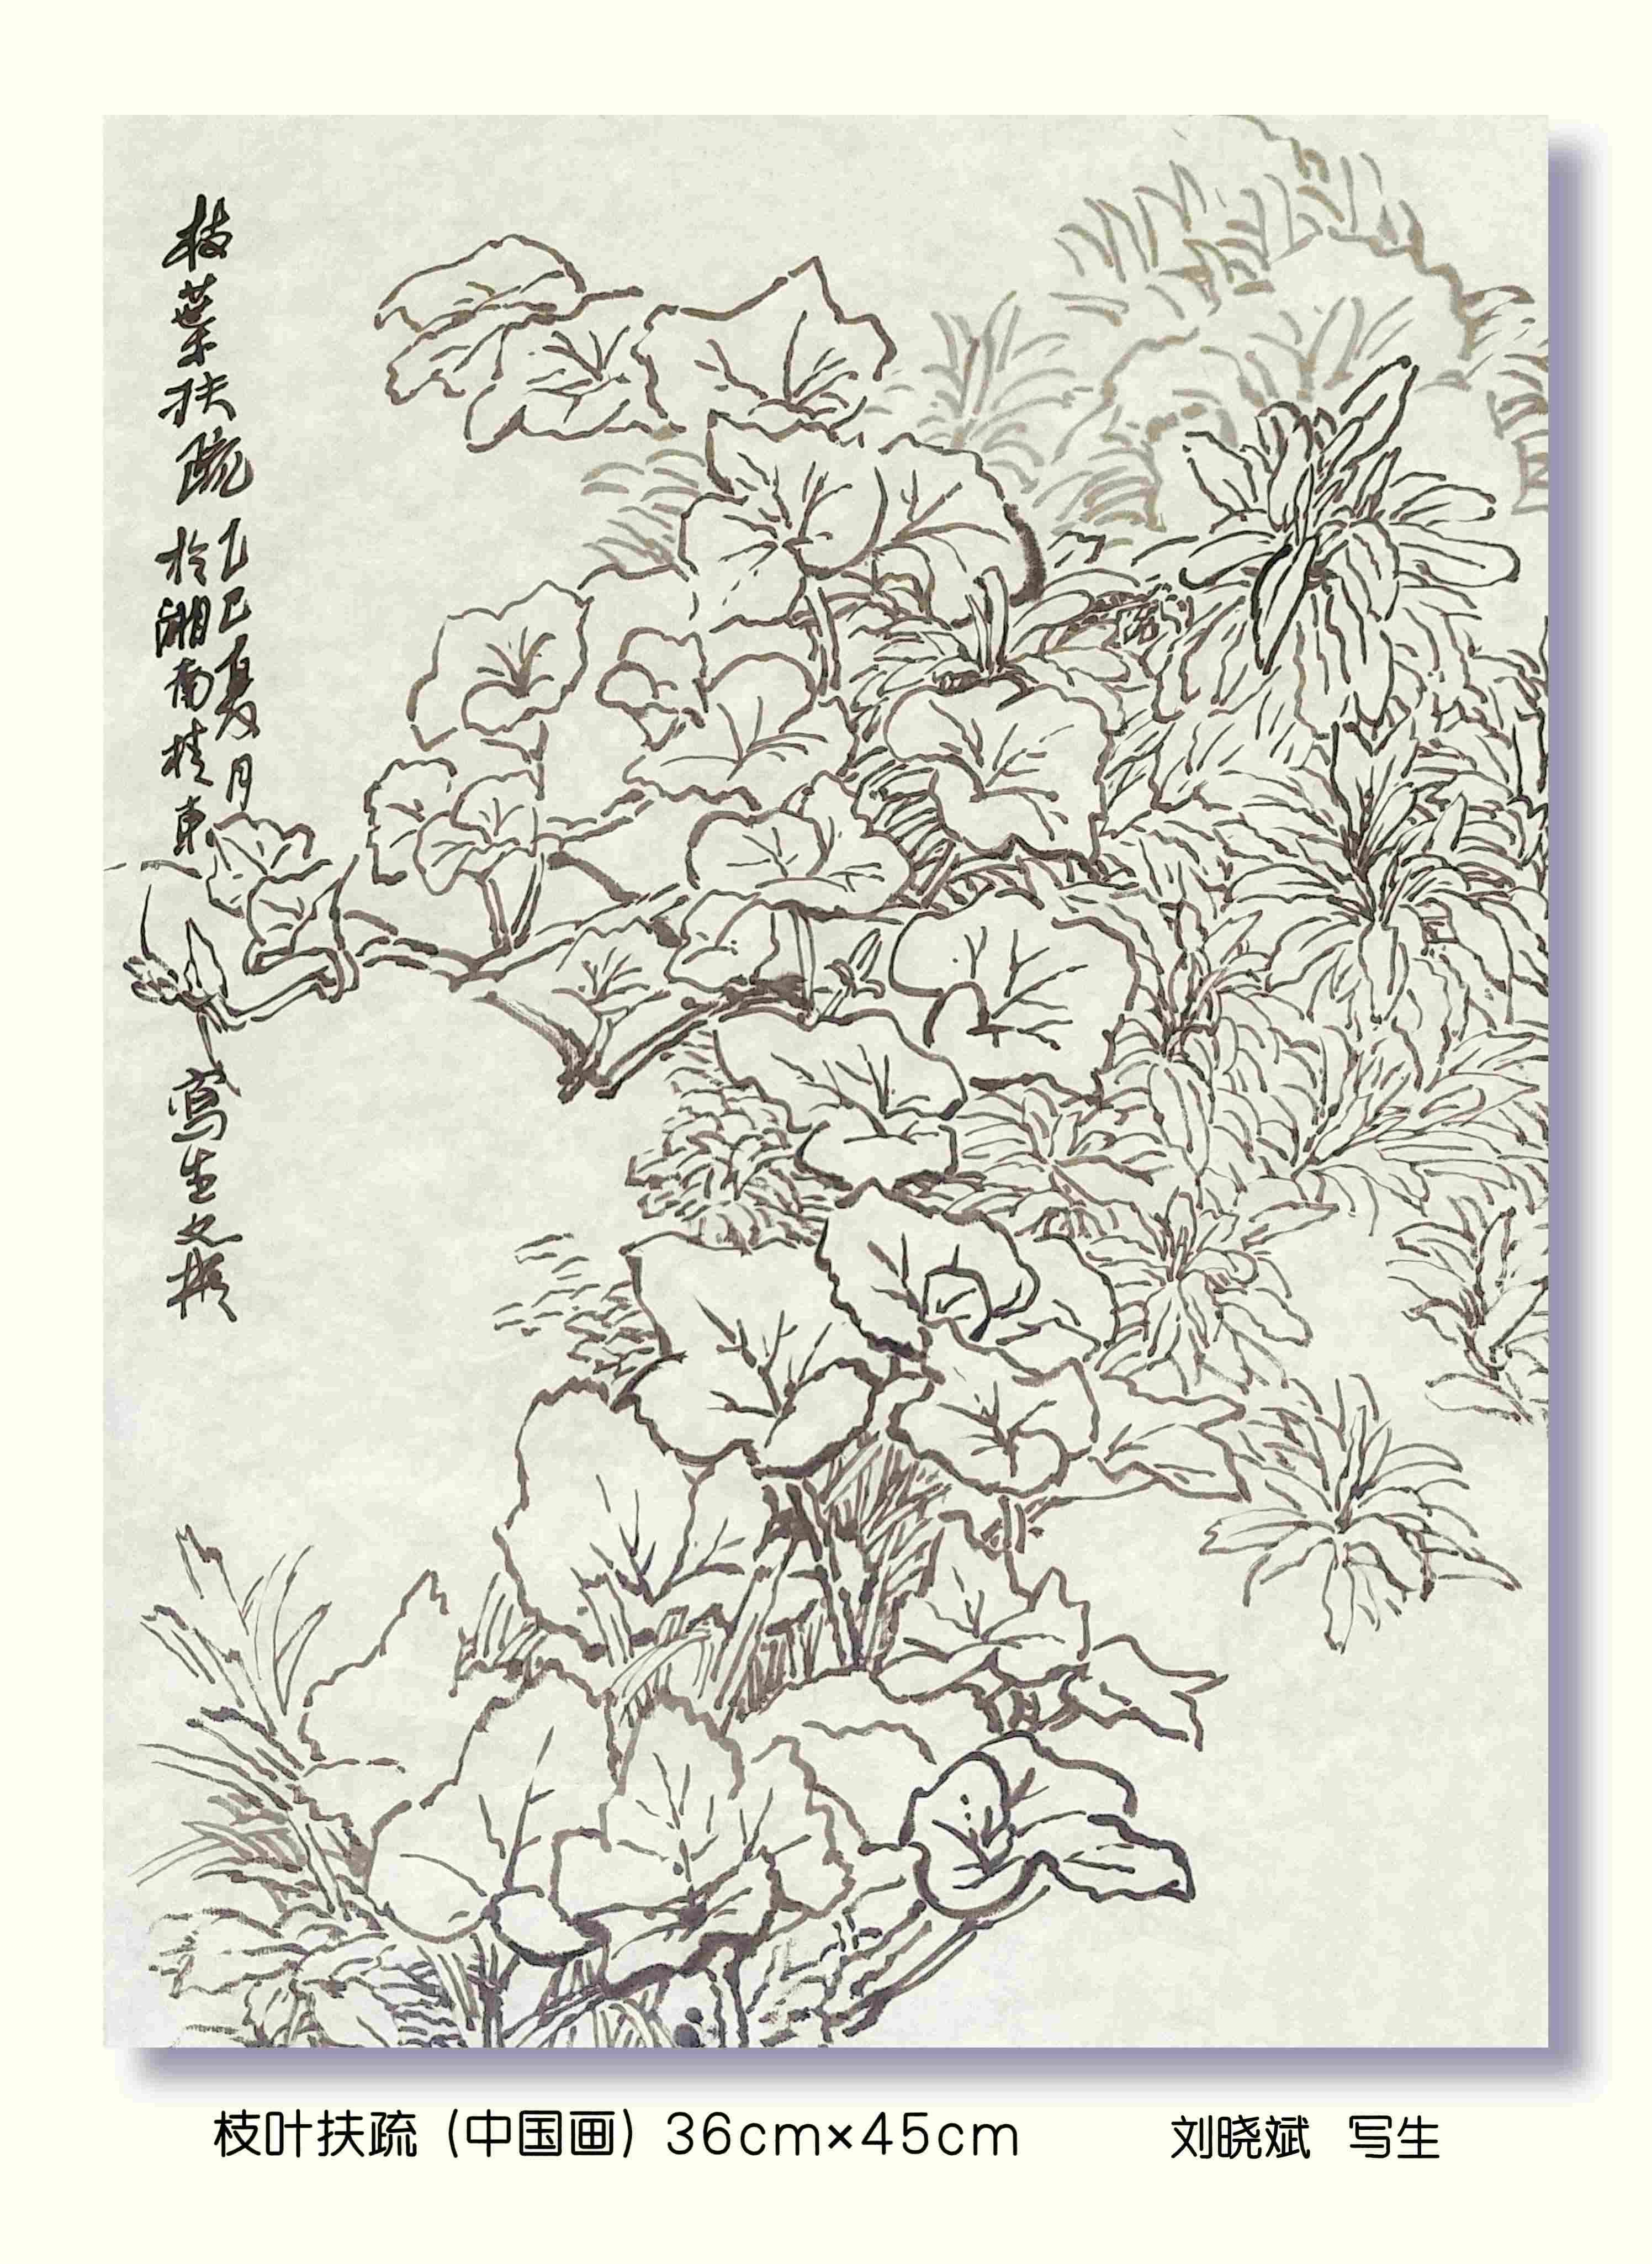 枝葉扶疏
乙巳夏月
於湘南桂東
寫生 文撰
枝叶扶疏（中国画）36cm×45cm 刘晓斌 写生